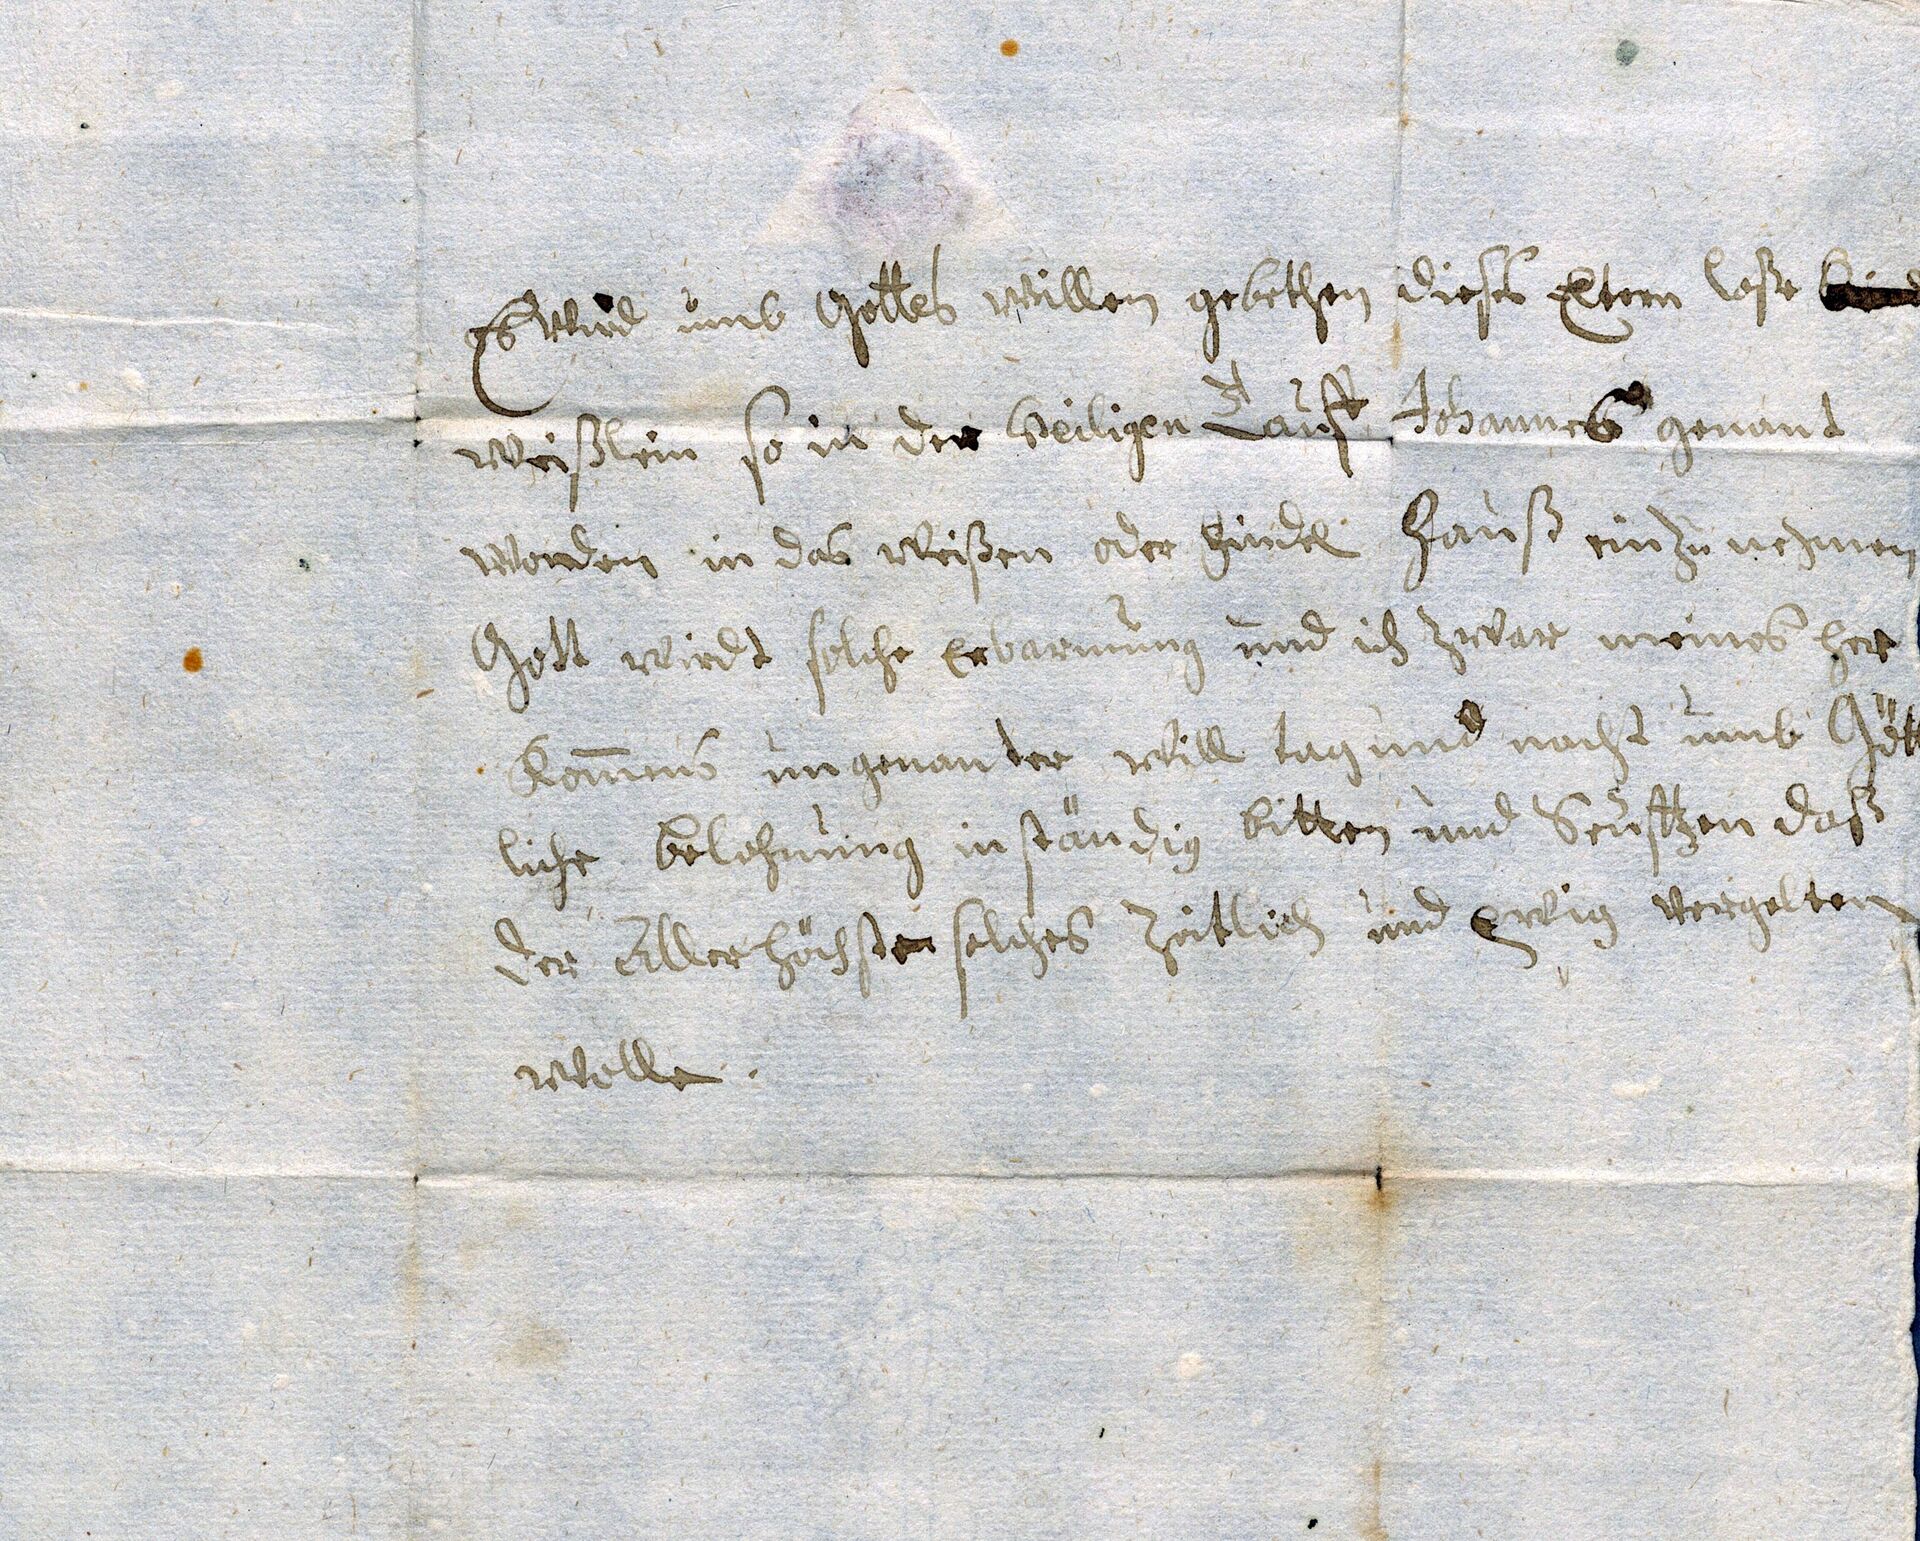 Es wird umb Gottes willen gebethen dieses Eltern lose
Weißlein so in der heiligen Tauff Johannes genant
worden in das Weißen oder Findel Hauß ein zu nehmen
Gott wirdt solche Erbarmung und ich zwar meines her
Kom̄ens ungenanter will tag und nacht umb Gött
liche belohnung inständig bitten und Seufftzen daß
der Aller höchste solches zeitlich und Ewig vergelten
wolle.